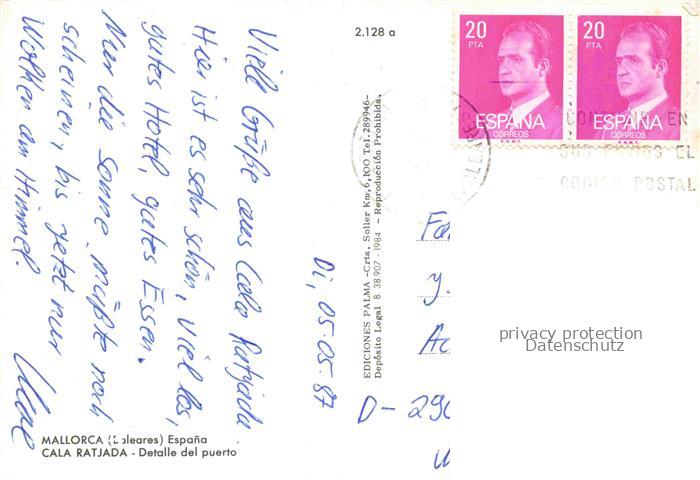 Viele Grüße aus Cala Ratjada.
Hier ist es sehr schön, viel los,
gutes Hotel, gutes Essen.
Nur die Sonne müßte noch
scheinen, bis jetzt nur
Wolken am Himmel.
Di, 05.05.87
MALLORCA (Baleares) España
CALA RATJADA - Detalle del puerto
2.128 a
EDICIONES PALMA -Crta. Soller Km,6,100 Tel.289946-
Depósito Legal B. 38.907 - 1984 - Reproducción Prohibida.
20
PTA
ESPAÑA
CORREOS
F.N.M.T.
20
PTA
ESPAÑA
CORREOS
F.N.M.T.
EN
EL
CODIGO POSTAL
D- 290
privacy protection
Datenschutz